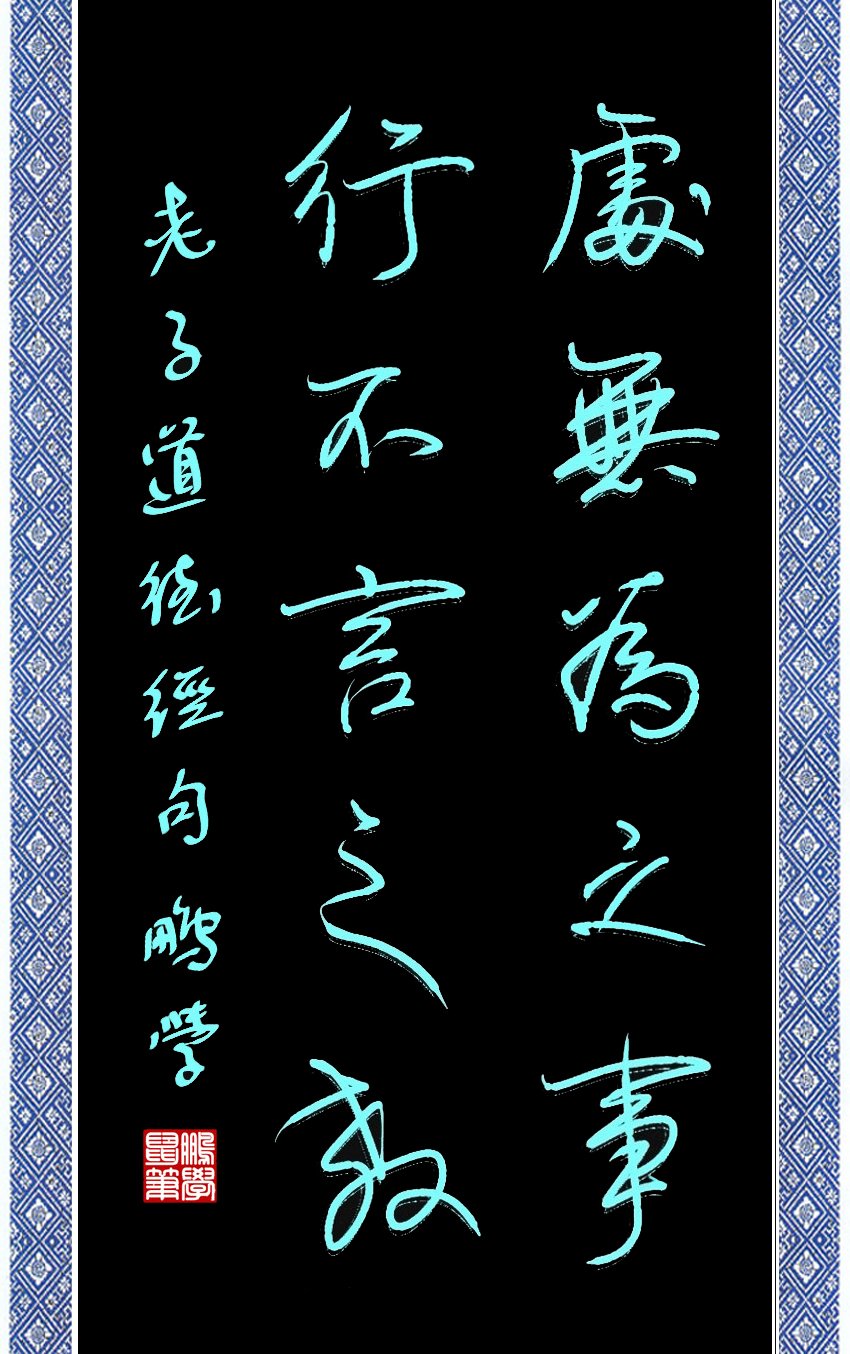 處無為之事
行不言之教
老子道德經句鵬學
鵬學
鼠筆